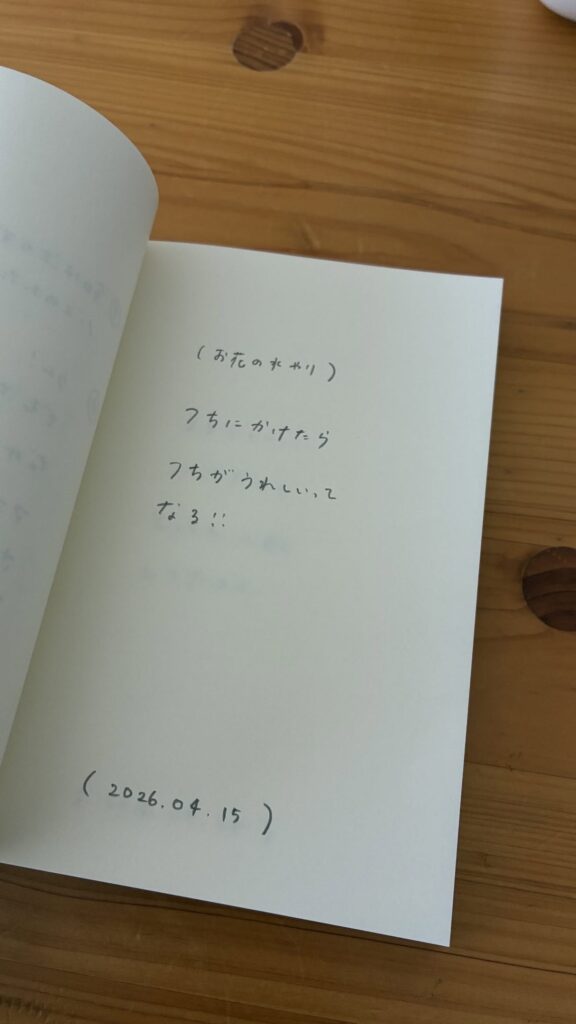 (お花の水やり)
つちにかけたら
つちがうれしいって
なる!!
(2026.04.15)